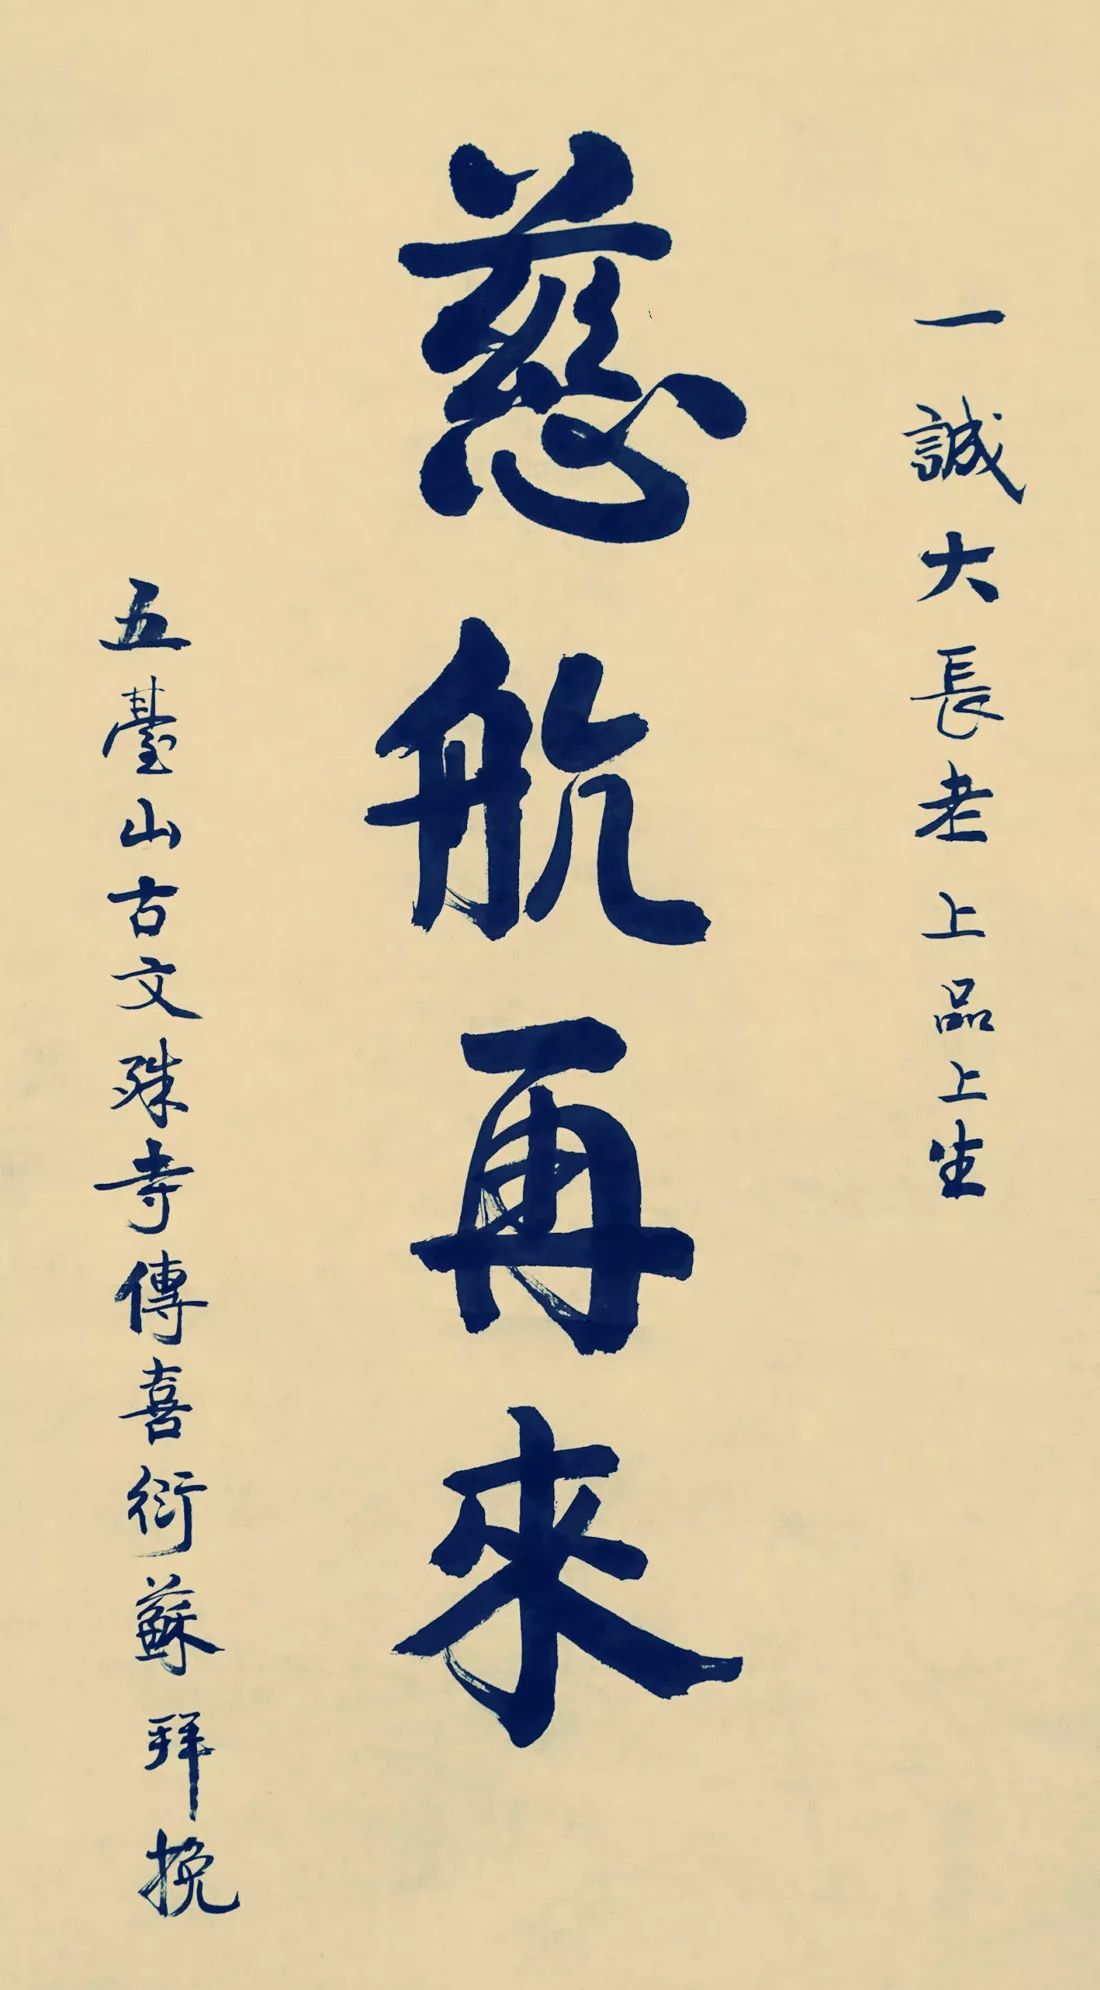 一誠大長老上品上生
慈航再來
五臺山古文殊寺傳喜衍蘇拜挽